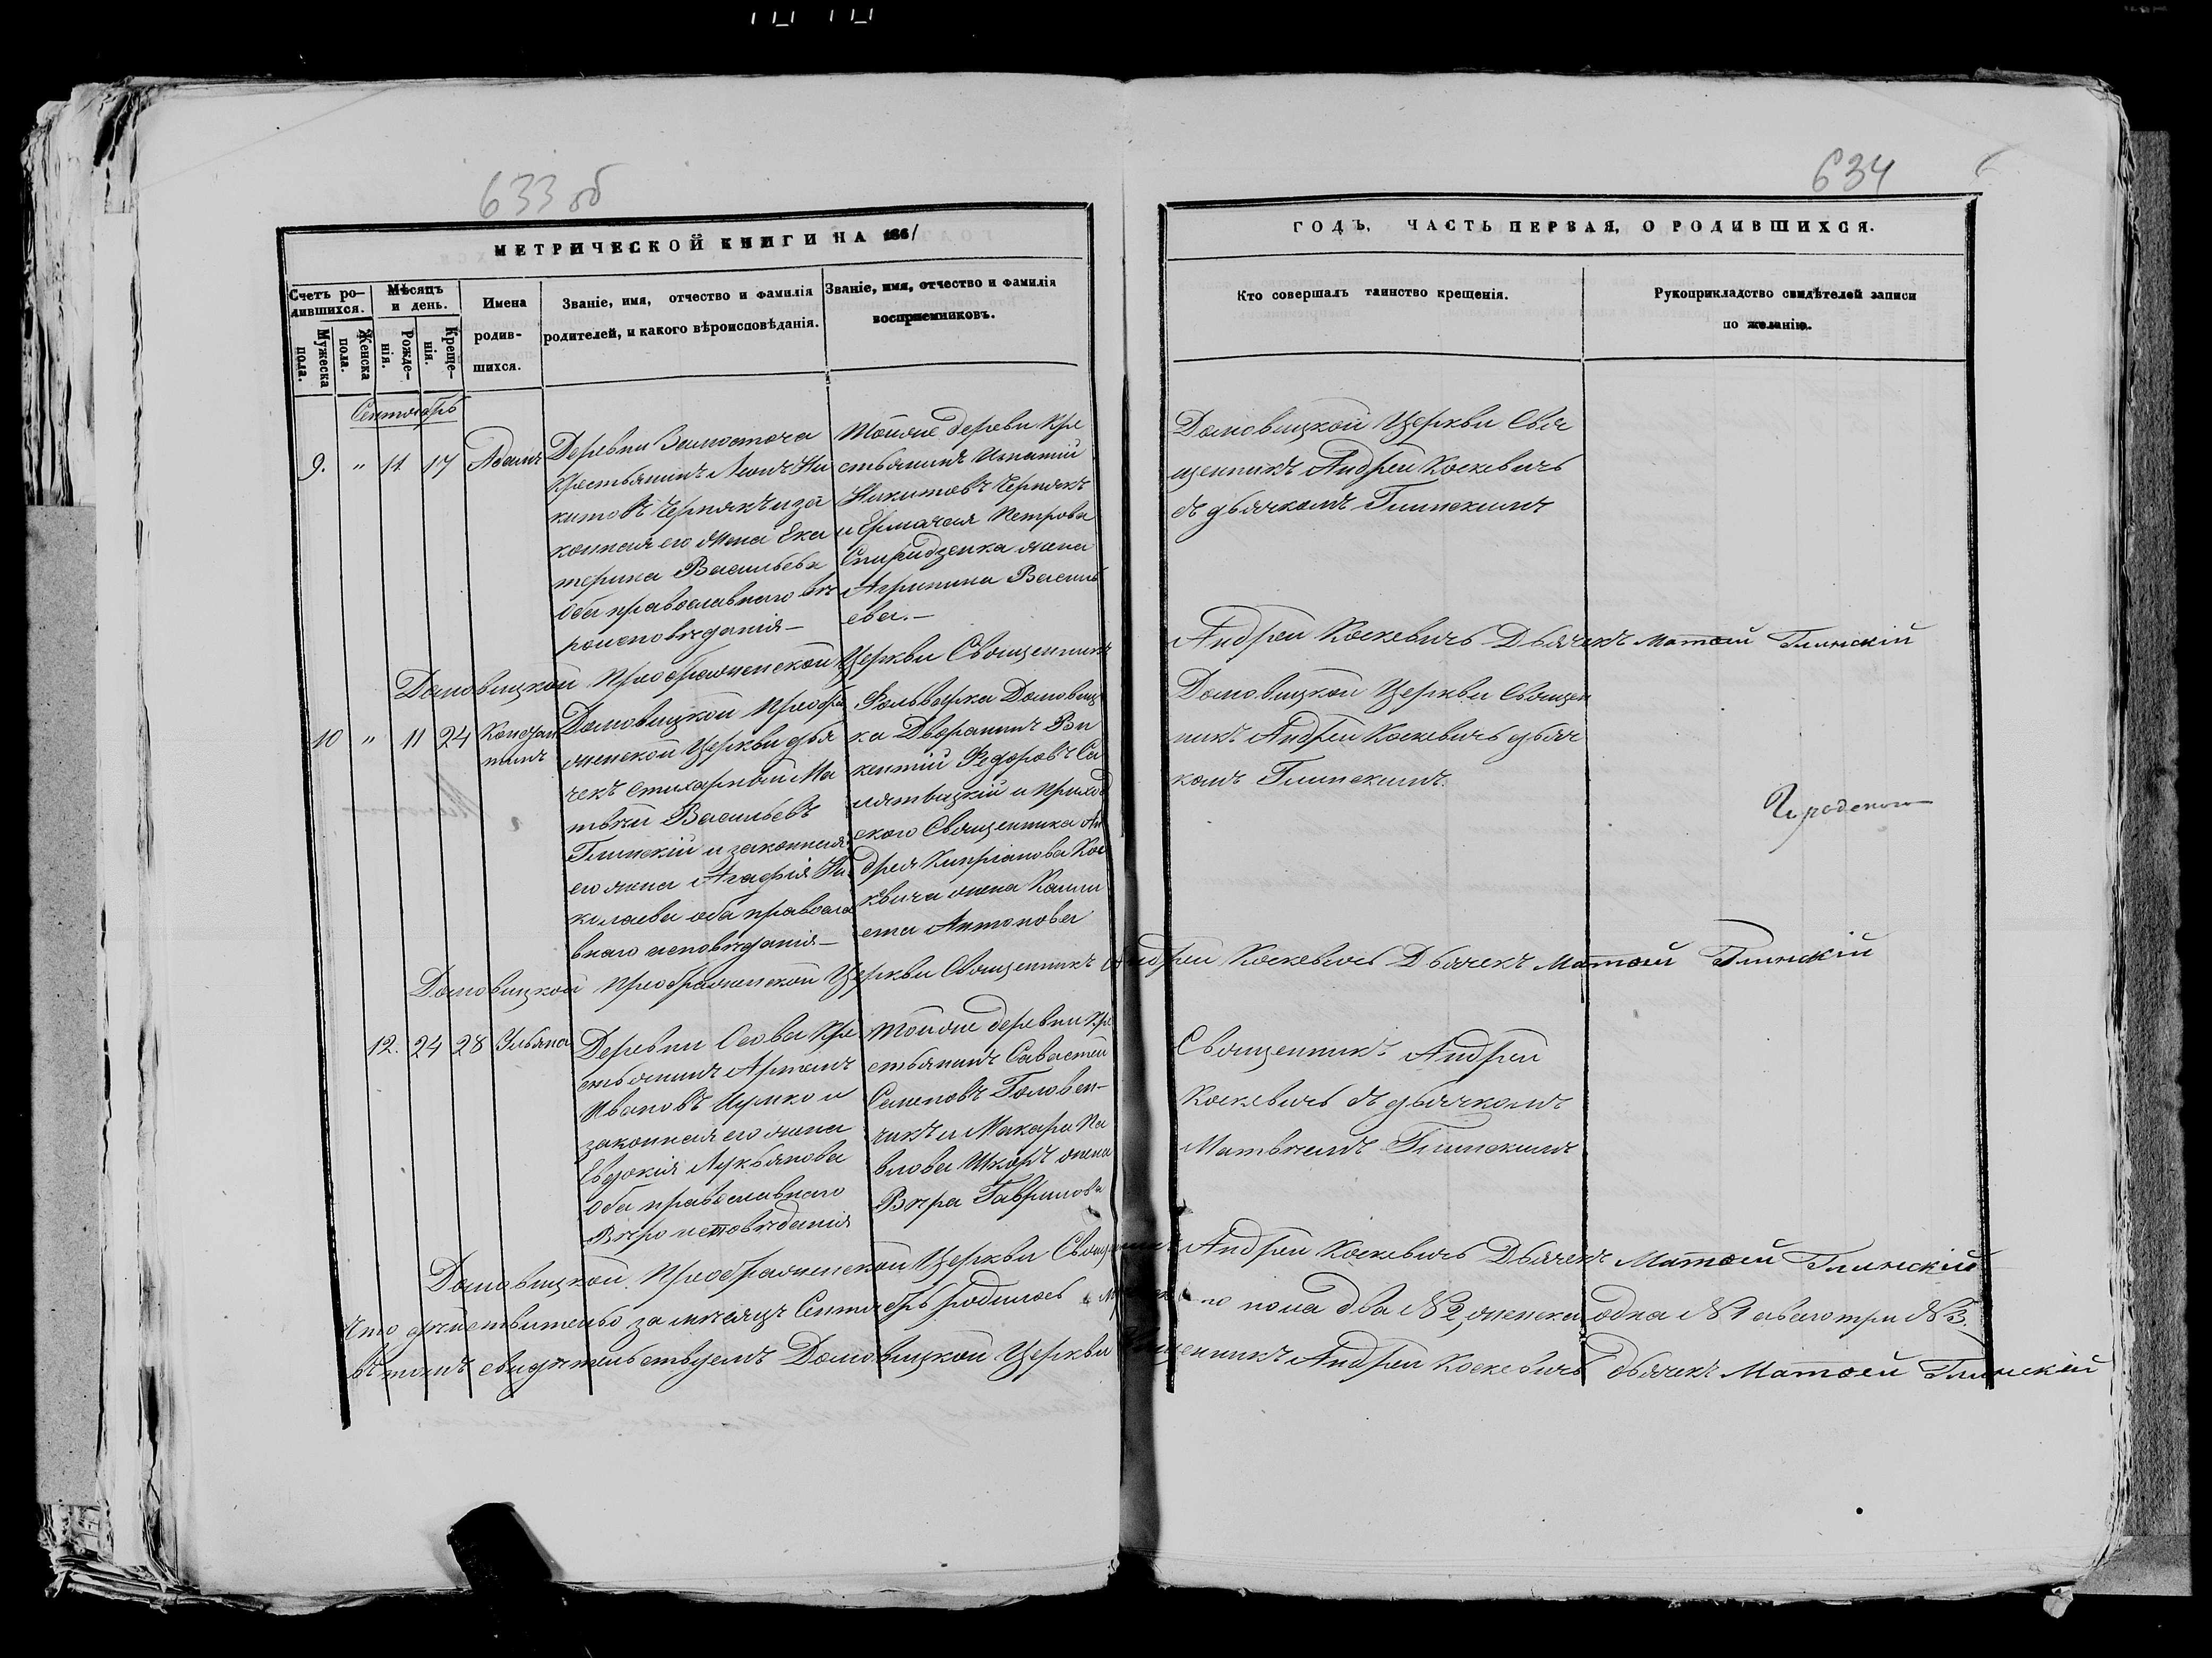 633 об
634
МЕТРИЧЕСКОЙ КНИГИ НА 1861
ГОДЪ, ЧАСТЬ ПЕРВАЯ, О РОДИВШИХСЯ.
Счетъ ро-
дившихся.
Мужеска
пола.
Женска
пола.
Мѣсяцъ
и день.
Рожде-
нія.
Креще-
нія.
Имена
родив-
шихся.
Званіе, имя, отчество и фамилія
родителей, и какого вѣроисповѣданія.
Званіе, имя, отчество и фамилія
воспріемниковъ.
Кто совершалъ таинство крещенія.
Рукоприкладство свидѣтелей записи
по желанію.
Сентябрь
9. " 11 17 Адамъ
Деревни Замосточа
Крестьянинъ Леонъ Ни
китовъ Чернякъ и за
конная его жена Ека
терина Васильева
оба православнаго вѣ
роисповѣданія—
Тойже деревни Кре
стьянинъ Игнатій
Никитовъ Чернякъ
и Ермачея Петрова
Спиридзенка жена
Агрипина Василь
ева.—
Домовицкой Церкви Свя
щенникъ Андрей Коскевичъ
съ дьячкомъ Глинскимъ
Домовицкой Преображенской Церкви Священникъ Андрей Коскевичъ Дьячекъ Матѳей Глинскій
10 " 11 24 Констан
тинъ
Домовицкой Преобра
женской Церкви дья
чекъ стихарный Ма
твѣй Васильевъ
Глинскій и законная
его жена Агафія Ни
колаева оба правосла
внаго исповѣданія—
Фольварка Домовиц
ка Дворянинъ Ви
кентій Федоровъ
и Приход
скаго Священника Ан
дрея Кипріанова Кос
кевича жена Камли
ета Антонова
Домовицкой Церкви Священ
никъ Андрей Коскевичъ дьяч
комъ Глинскимъ.
Домовицкой Преображенской Церкви Священникъ Андрей Коскевичъ Дьячекъ Матѳей Глинскій
12. 24 28 Ульяна
Деревни Осова Кре
стьянинъ Артемъ
Ивановъ Шумко и
законная его жена
Евдокія Лукьянова
оба православнаго
Вѣроисповѣданія
Тойже деревни Кре
стьянинъ Савастей
Семеновъ Головен-
чикъ и Макара Па
влова Шкоръ жена
Вѣра Гаврилова
Священникъ Андрей
Коскевичъ съ дьячкомъ
Матвѣемъ Глинскимъ
Домовицкой Преображенской Церкви Священникъ Андрей Коскевичъ Дьячекъ Матѳей Глинскій
Что дѣйствительно за мѣсяцъ Сентябрь родилось пола два №2, женска одна №1 авсего три №3.
Въ томъ свидѣтельствуемъ Домовицкой Церкви Священникъ Андрей Коскевичъ дьячекъ Матѳей Глинскій